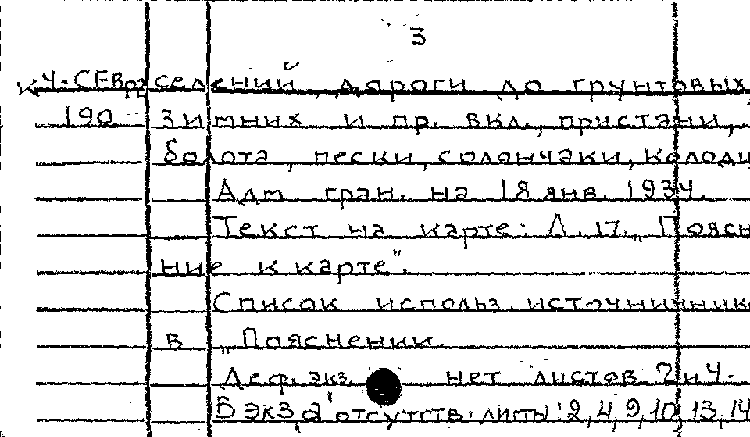 3
К4-СЕВ селений, дороги до грунтовых
190 зимних и пр. вкл., пристани,
болота, пески, солончаки, колод
Адм. гран. на 18 янв. 1934.
Текст на карте: Л. 17. „Поясн
ние к карте".
Список использ. источников
в „Пояснении
Деф. экз. нет листов 2 и 4.
В экз 2 отсутств. листы: 2, 4, 9, 10, 13, 14